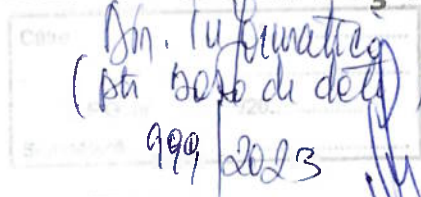 Dir. Informatică
(ptr baza de date)
999/2023